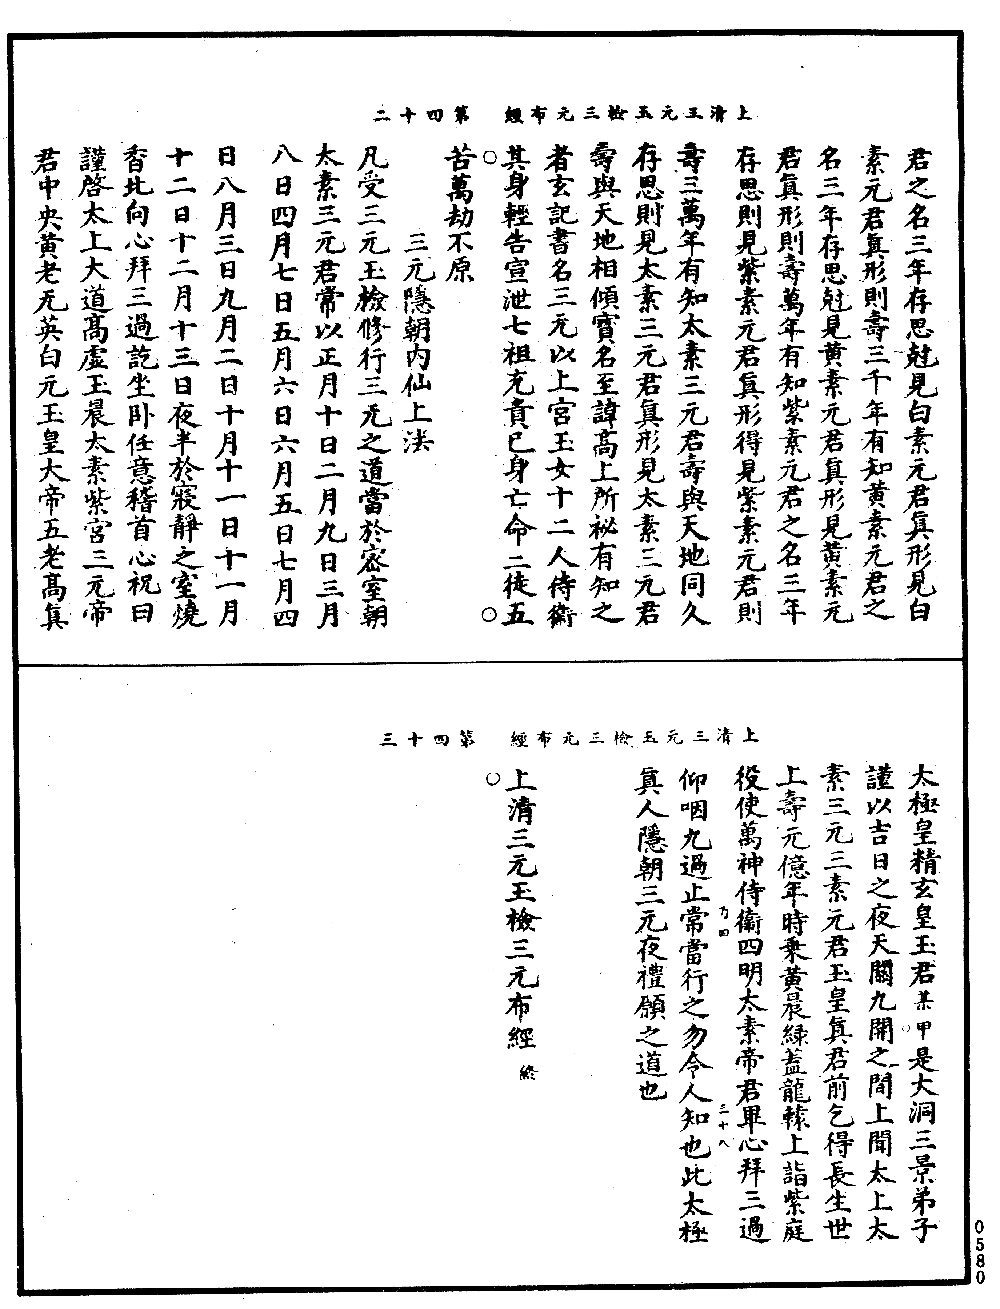 上清玉元玉檢三元布經　第四十二
君之名三年存思尅見白素元君真形見白
素元君真形則壽三千年有知黃素元君之
名三年存思尅見黃素元君真形見黃素元
君真形則壽萬年有知紫素元君之名三年
存思則見紫素元君真形得見紫素元君則
壽三萬年有知太素三元君壽與天地同久
存思則見太素三元君真形見太素三元君
壽與天地相傾寶名至諱高上所祕有知之
者玄記書名三元以上宮玉女十二人侍衛
其身輕告宣泄七祖充責已身亡命二徒五
苦萬劫不原
三元隱朝內仙上法
凡受三元玉檢修行三元之道當於密室朝
太素三元君常以正月十日二月九日三月
八日四月七日五月六日六月五日七月四
日八月三日九月二日十月十一日十一月
十二日十二月十三日夜半於寢靜之室燒
香北向心拜三過訖坐卧任意稽首心祝曰
謹啓太上大道高虛玉晨太素紫宮三元帝
君中央黃老无英白元玉皇大帝五老高真
上清三元玉檢三元布經　第四十三
太極皇精玄皇玉君某甲是大洞三景弟子
謹以吉日之夜天關九開之間上聞太上太
素三元三素元君玉皇真君前乞得長生世
上壽元億年時乘黃晨綠蓋龍轅上詣紫庭
役使萬神侍衛四明太素帝君畢心拜三過
乃四　三十八
仰咽九過止常當行之勿令人知也此太極
真人隱朝三元夜禮願之道也
上清三元玉檢三元布經 終
0580